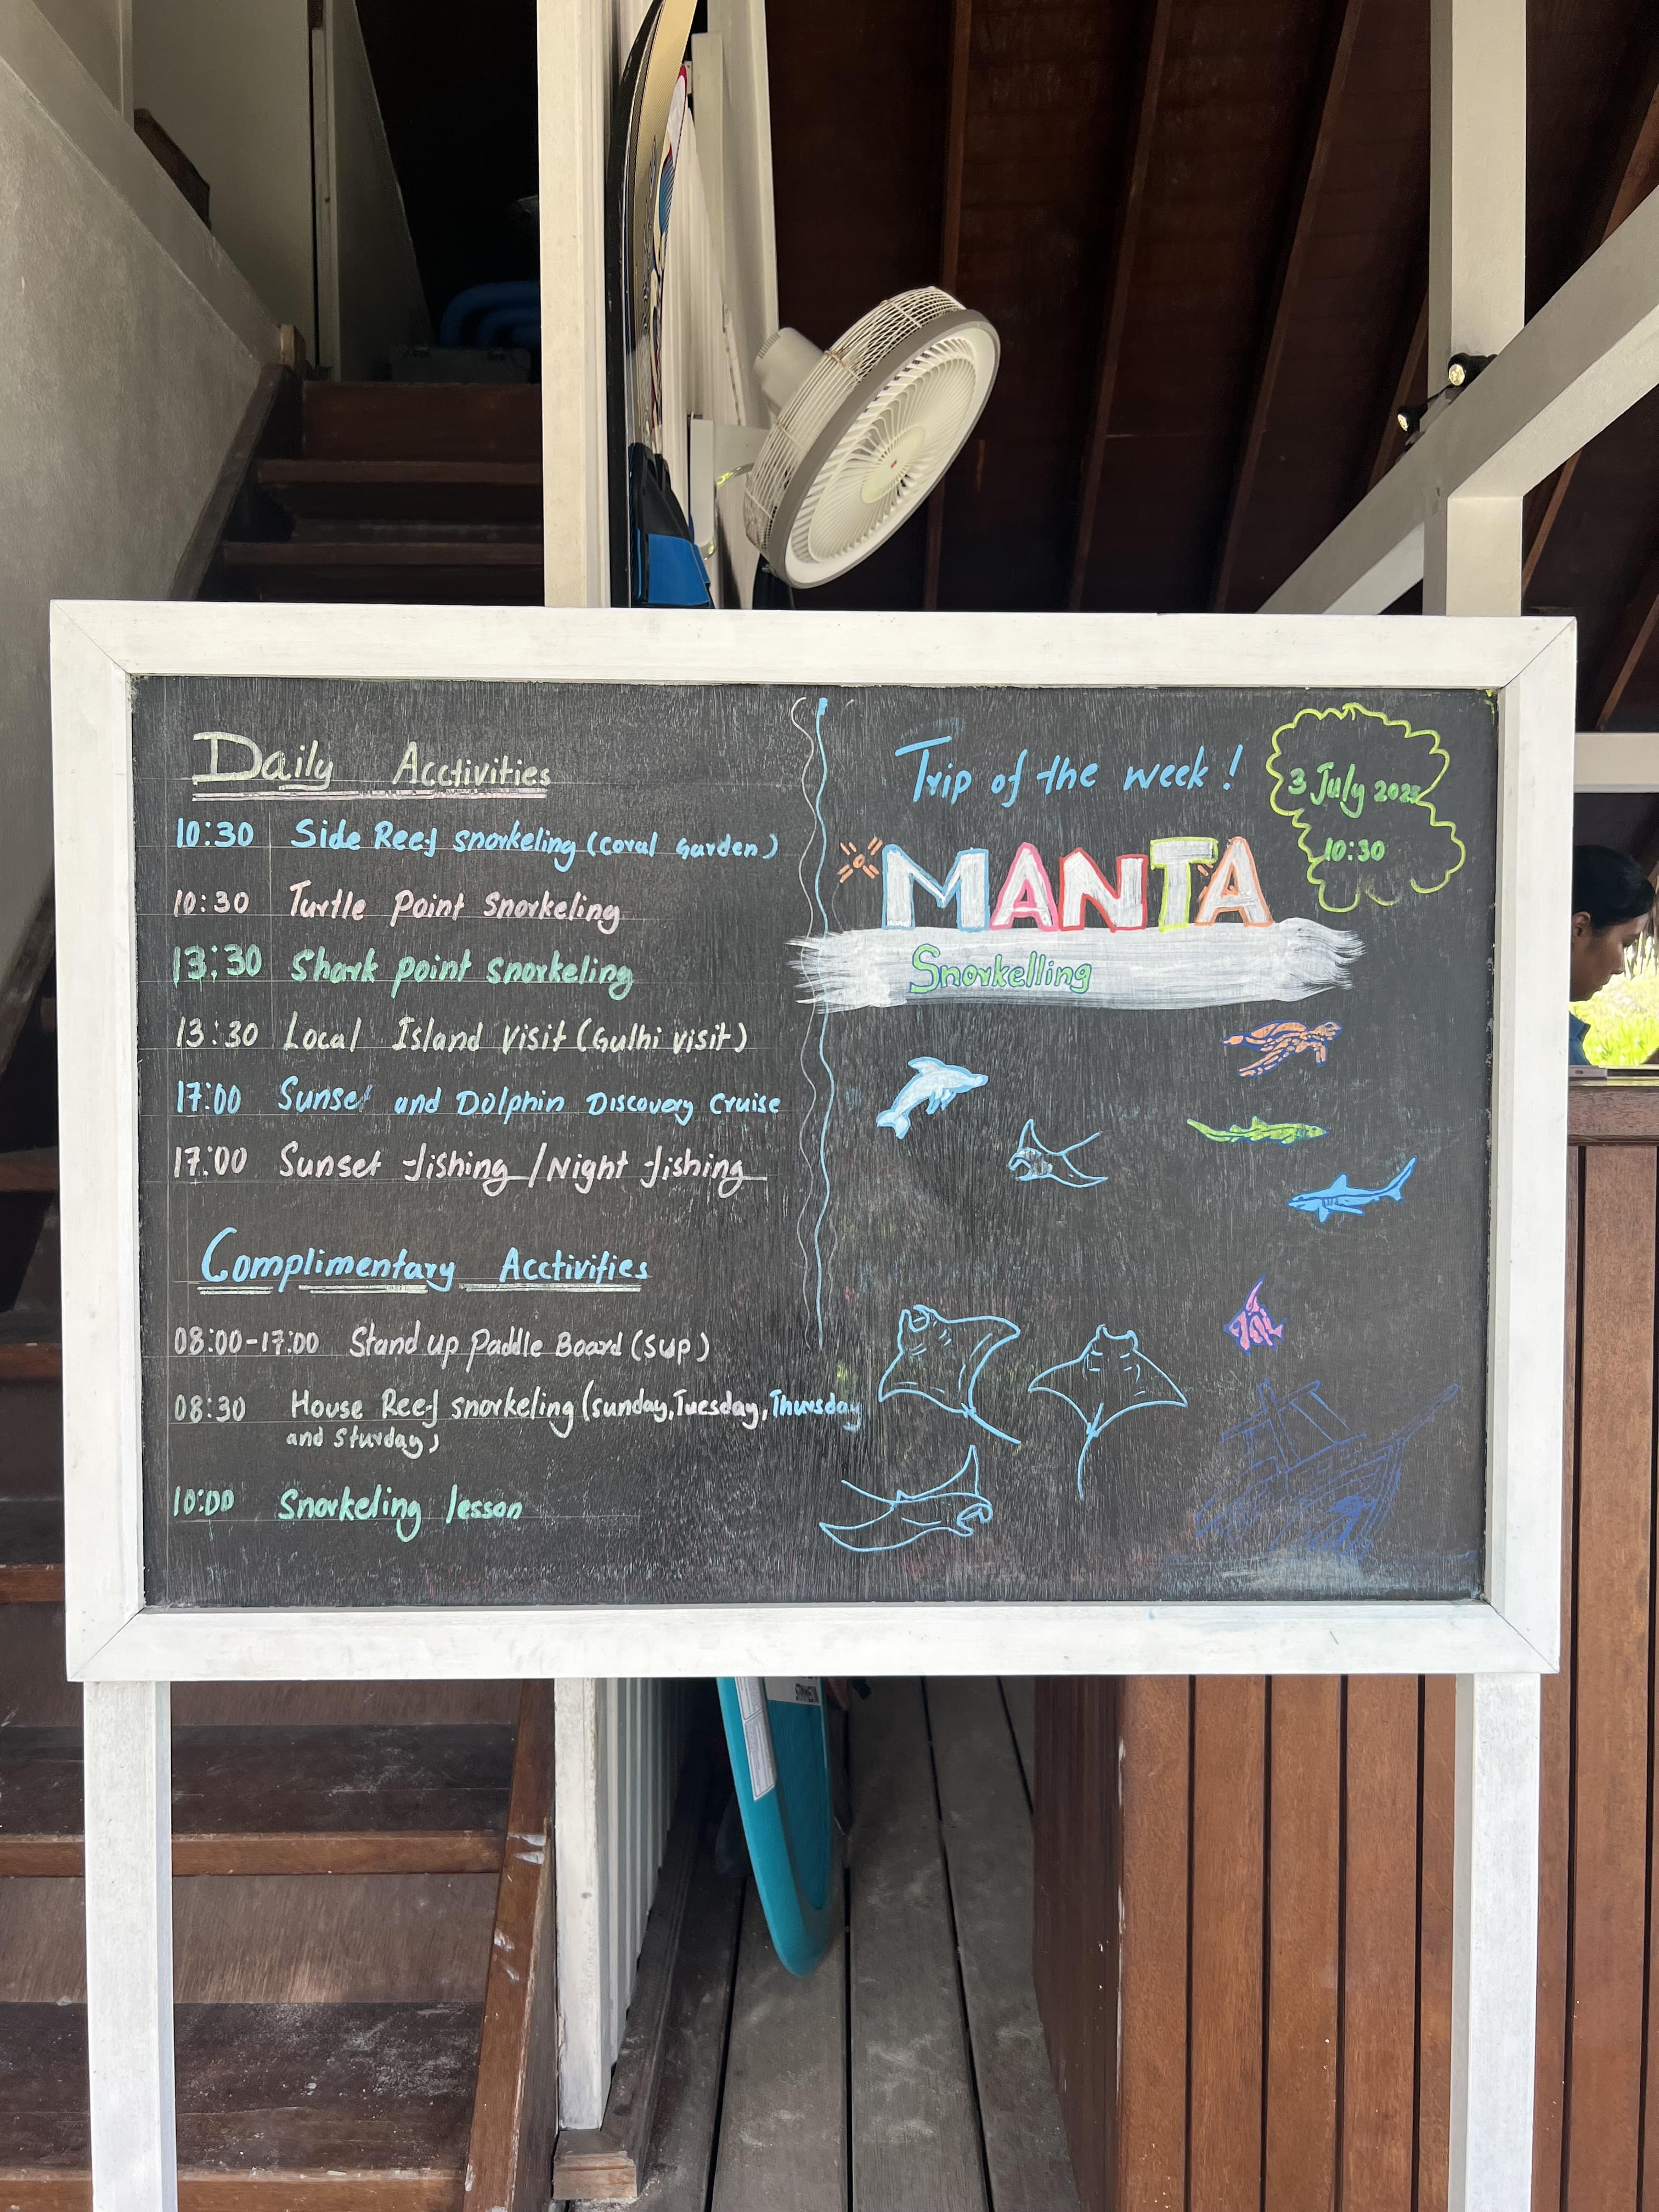 Daily Acctivities
10:30 Side Reef snorkeling (coral Garden)
10:30 Turtle Point snorkeling
13:30 Shark point snorkeling
13:30 Local Island visit (Gulhi visit)
17:00 Sunset and Dolphin Discovery Cruise
17:00 Sunset fishing / Night fishing
Complimentary Acctivities
08:00-17:00 Stand up Paddle Board (sup)
08:30 House Reef snorkeling (sunday, Tuesday, Thursday
and Sturday)
10:00 Snorkeling lesson
Trip of the week!
MANTA
Snorkelling
3 July
10:30